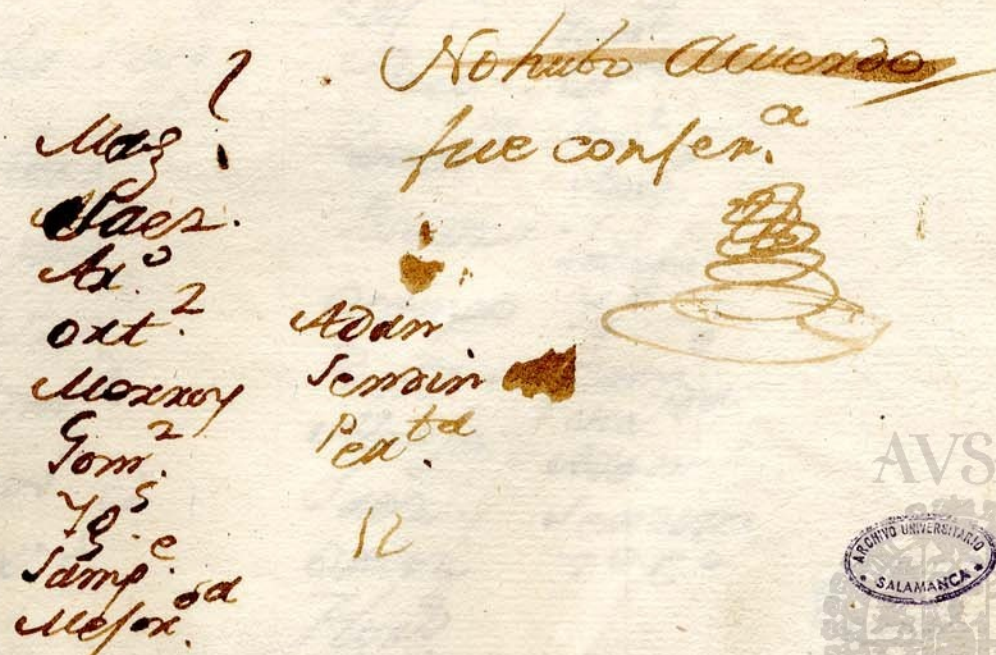 No hubo Acuerdo
fue conferª
Paez.
Arº
Ort.z
Monroy
Gom.z
Samp.e
Mejor.da
Adan
Sendin
Per.ta
12
AVSA
ARCHIVO UNIVERSITARIO
SALAMANCA